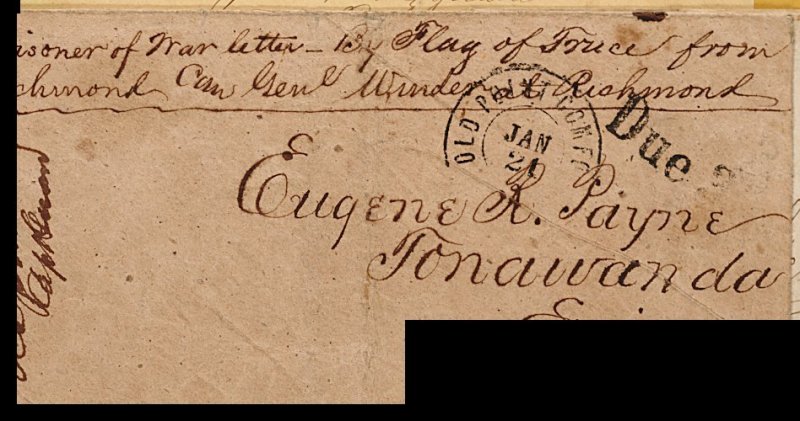 isoner of War letter - By Flag of Truce from
chmond Care Genl Winder at Richmond
OLD POINT COMF
JAN
21
Due
Eugene R. Payne
Tonawanda